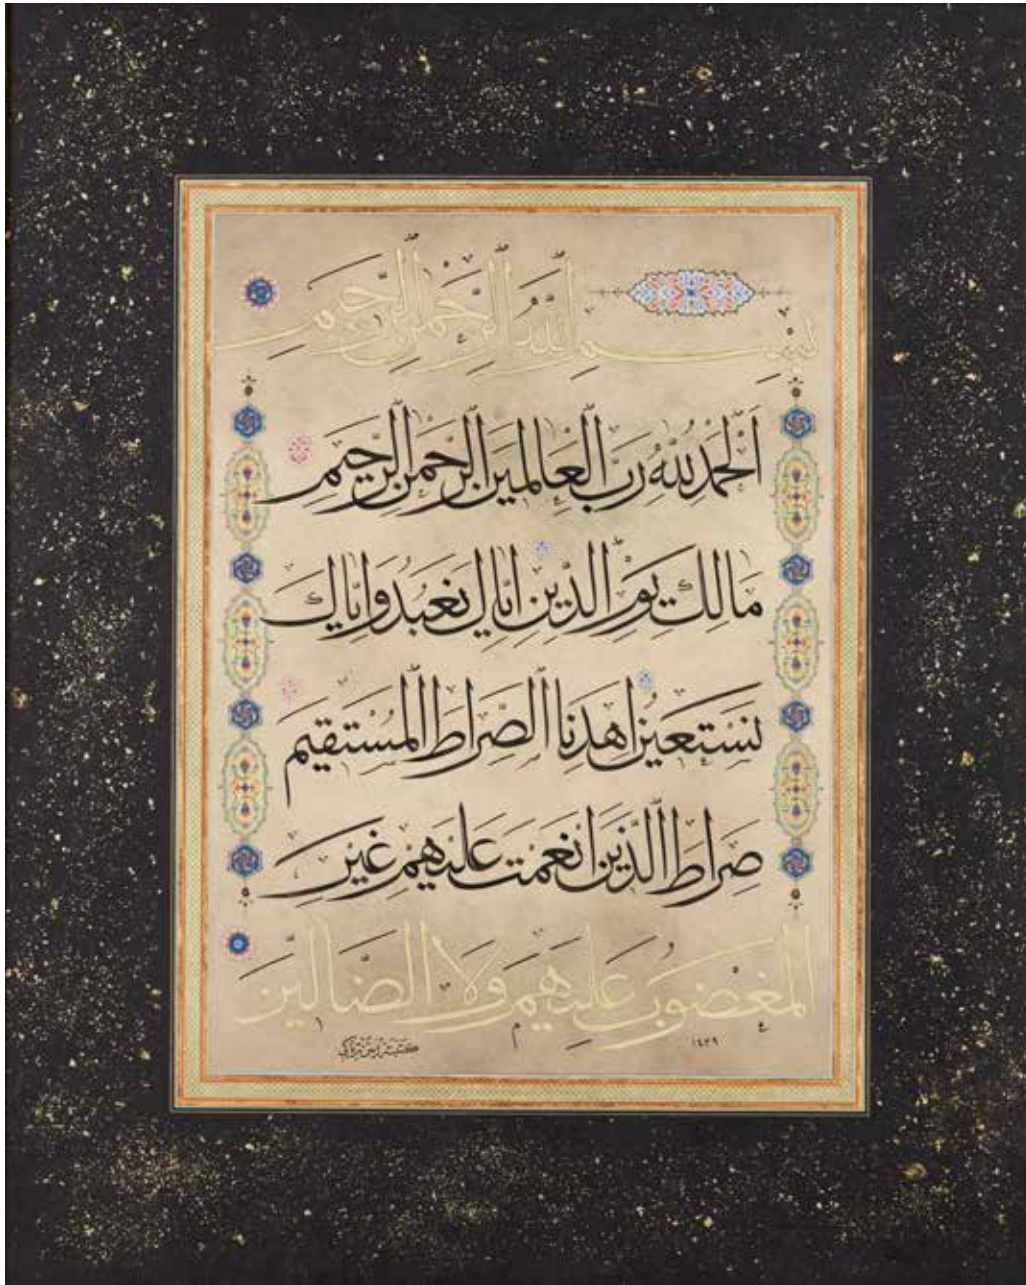 بِسْمِ اللَّهِ الرَّحْمٰنِ الرَّحِيمِ
اَلْحَمْدُ لِلّٰهِ رَبِّ الْعَالَمِينَ الرَّحْمٰنِ الرَّحِيمِ
مَالِكِ يَوْمِ الدِّينِ اِيَّاكَ نَعْبُدُ وَاِيَّاكَ
نَسْتَعِينُ اِهْدِنَا الصِّرَاطَ الْمُسْتَقِيمَ
صِرَاطَ الَّذِينَ اَنْعَمْتَ عَلَيْهِمْ غَيْرِ
الْمَغْضُوبِ عَلَيْهِمْ وَلَا الضَّالِّينَ
١٤٣٩